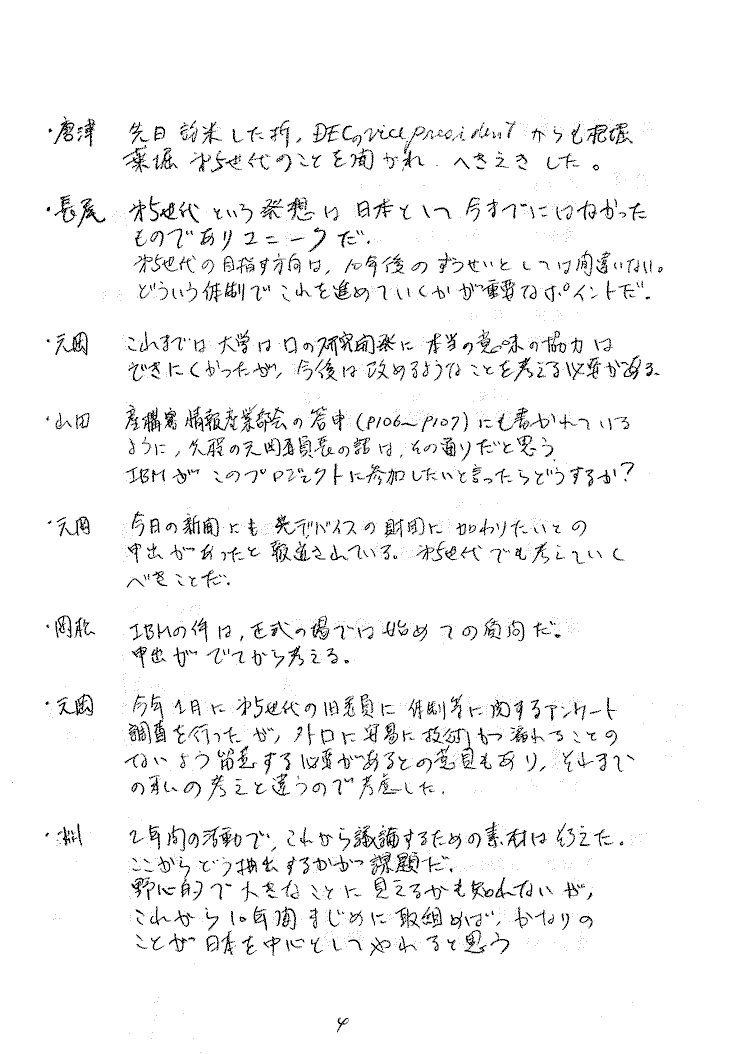 ・唐津 先日訪米した折、DECのvice presidentからも根堀
葉堀 第5世代のことを聞かれ へきえきした。
・長尾 第5世代という発想は日本として今までにはなかった
ものでありユニークだ。
第5世代の目指す方向は、10年後のすうせいとしては間違いない。
どういう体制でこれを進めていくかが重要なポイントだ。
・元岡 これまでは大学は国の研究開発に本当の意味の協力は
できにくかったが、今後は改めるようなことを考える必要がある。
・山田 産構審情報産業部会の答申(P106〜P107)にも書かれている
ように、先般の元岡委員長の話は、その通りだと思う
IBMがこのプロジェクトに参加したいと言ったらどうするか?
・元岡 今日の新聞にも光デバイスの財団に加わりたいとの
申出があったと報道されている。第5世代でも考えていく
べきことだ。
・岡松 IBMの件は、正式の場では始めての質問だ。
申出がでてから考える。
・元岡 今年1月に第5世代の旧委員に体制等に関するアンケート
調査を行ったが、外国に容易に技術が漏れることの
ないよう留意する必要があるとの意見もあり、それまで
の私の考えと違うので考慮した。
・ 2年間の活動で、これから議論するための素材は
ここからどう抽出するかが課題だ。
野心的で大きなことに見えるかも知れないが、
これから10年間まじめに取組めば、かなりの
ことが日本を中心としてやれると思う
4